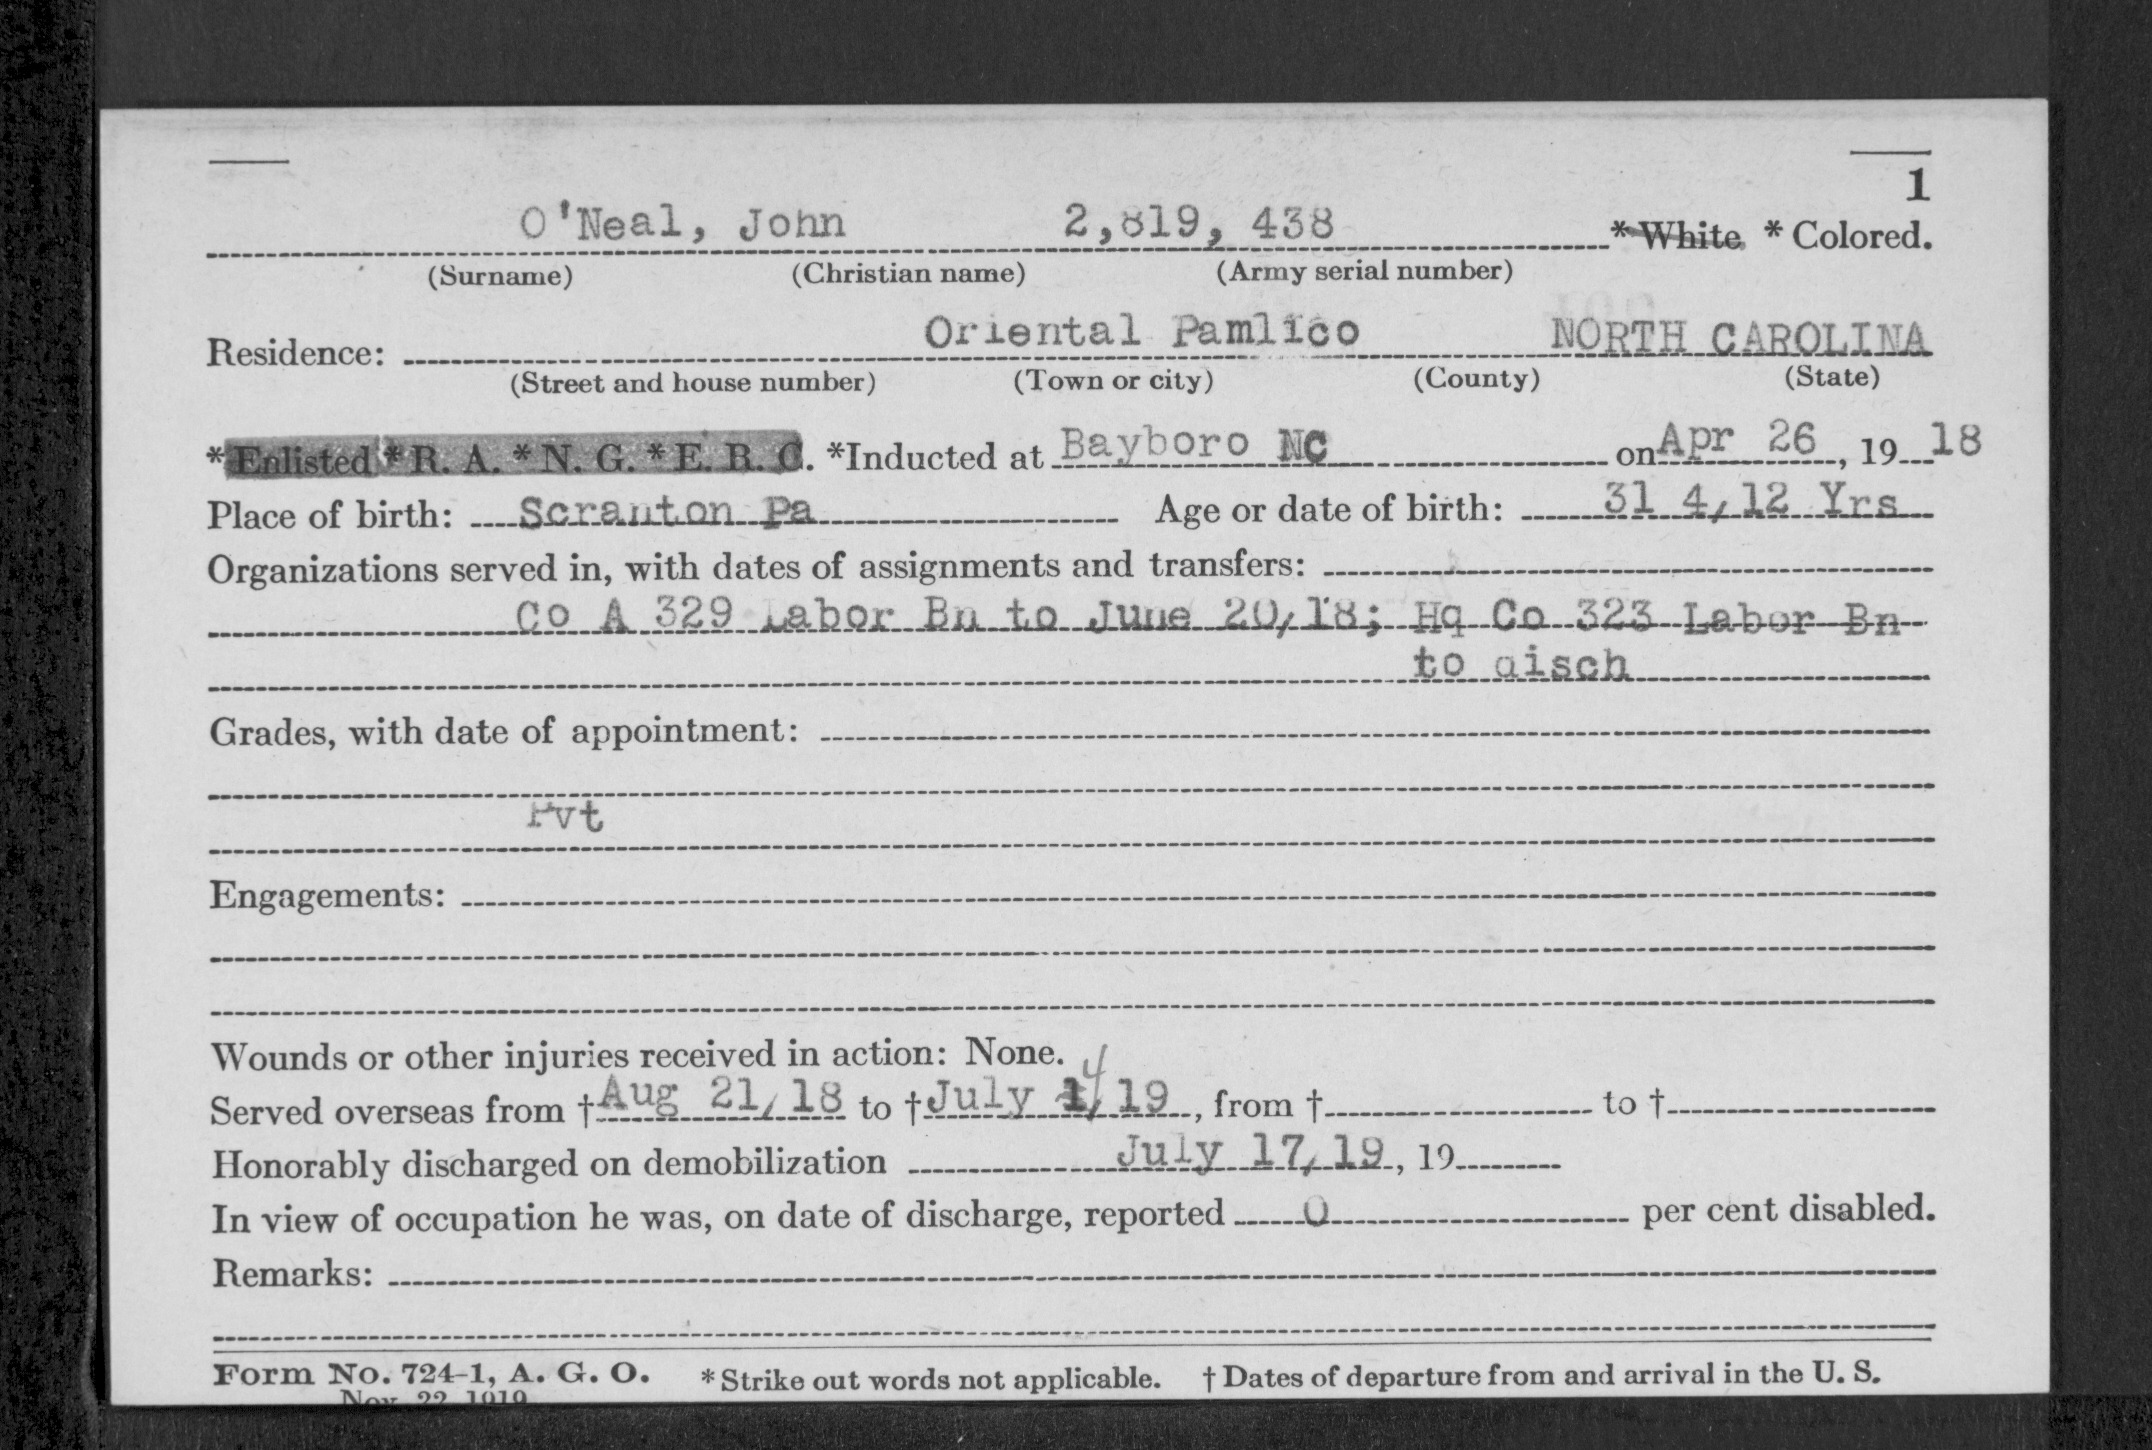 1
O'Neal, John 2,819, 438 *White *Colored.
(Surname) (Christian name) (Army serial number)
Residence: Oriental Pamlico NORTH CAROLINA
(Street and house number) (Town or city) (County) (State)
*Enlisted *R. A. *N. G. *E. R. C. *Inducted at Bayboro NC on Apr 26, 1918
Place of birth: Scranton Pa Age or date of birth: 31 4/12 Yrs
Organizations served in, with dates of assignments and transfers:
Co A 329 Labor Bn to June 20/18; Hq Co 323 Labor Bn
to disch
Grades, with date of appointment:
Pvt
Engagements:
Wounds or other injuries received in action: None.
Served overseas from †Aug 21/18 to †July 4/19, from † to †
Honorably discharged on demobilization July 17/19, 19
In view of occupation he was, on date of discharge, reported 0 per cent disabled.
Remarks:
Form No. 724-1, A. G. O. *Strike out words not applicable. †Dates of departure from and arrival in the U. S.
Nov. 22, 1919